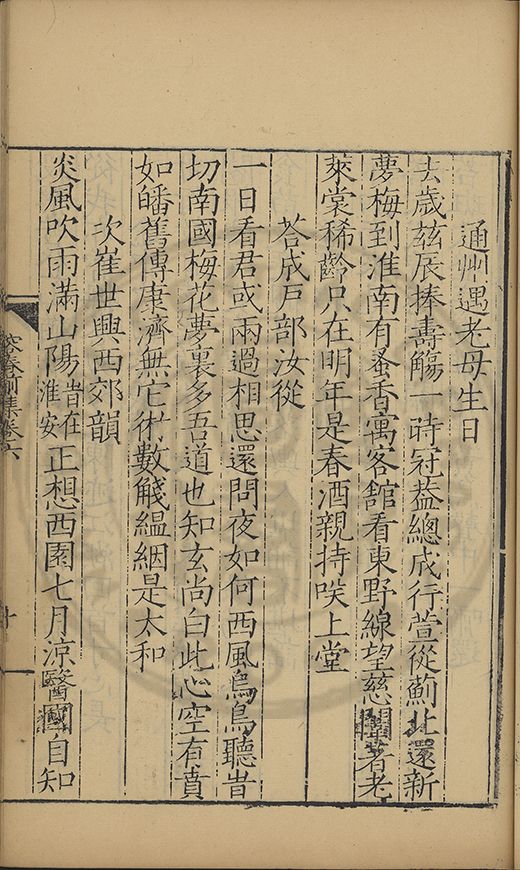 通州遇老母生日
去歳兹辰捧壽觴一時冠葢總成行萱從薊北還新
夢梅到淮南有蚤香寓客舘看東野線望慈闈著老
萊裳稀齡只在明年是春酒親持咲上堂
荅成戸部汝從
一日看君或兩過相思還問夜如何西風烏鳥聽昔
切南國梅花夢裏多吾道也知玄尚白此心空有賁
如皤舊傳康濟無它術數觥緼絪是太和
次崔世興西郊韻
炎風吹雨滿山陽昔在淮安正想西園七月凉醫國自知
容菴前集卷六
十